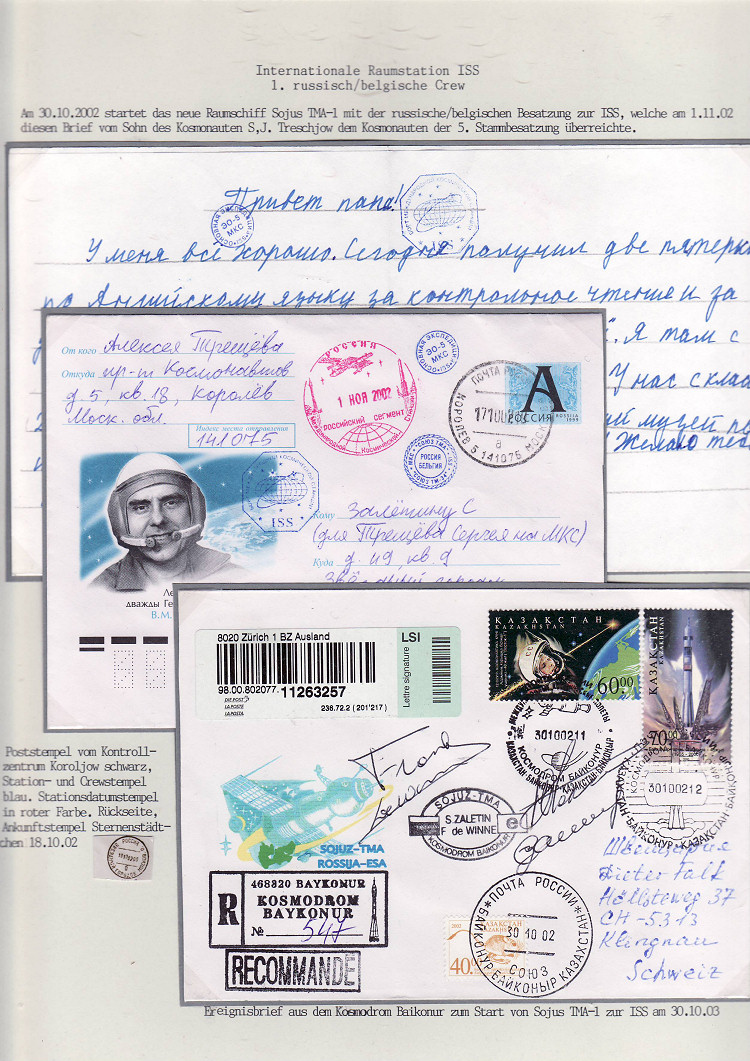 Internationale Raumstation ISS
1. russisch/belgische Crew
Am 30.10.2002 startet das neue Raumschiff Sojus TMA-1 mit der russische/belgischen Besatzung zur ISS, welche am 1.11.02
diesen Brief vom Sohn des Kosmonauten S,J. Treschjow dem Kosmonauten der 5. Stammbesatzung überreichte.
Привет папа!
ЭО-5
МКС
У меня всё хорошо. Сегодня получил две пятерки
по Английскому языку за контрольное чтение и за
Я там с
У нас скла
й музей по
Желаю теб
От кого Алексея Трещёва
Откуда пр-т Космонавтов
д 5, кв. 18, Королёв
Моск. обл.
Индекс места отправления
141075
РОССИЯ
1 НОЯ 2002
РОССИЙСКИЙ СЕГМЕНТ
ОСНОВНАЯ ЭКСПЕДИЦИЯ
ЭО-5
МКС
СОЮЗ ТМ-34
РОССИЯ
БЕЛЬГИЯ
ПОЧТА РО
171002
8
КОРОЛЕВ 5 141075 МОСК
А
РОССИЯ
ROSSIJA
1999
ISS
Кому Залётину С
(для Трещёва Сергея на МКС)
Куда д. 49, кв 9
Звёздный городок
Ле
дважды Ге
В.М.
8020 Zürich 1 BZ Ausland
LSI
Lettre signature
98.00.802077.11263257
DIE POST
LA POSTE
LA POSTA
236.72.2 (201'217)
ҚАЗАҚСТАН
KAZAKHSTAN
60.00
ҚАЗАҚСТАН
70.00
30100211
КОСМОДРОМ БАЙКОНУР
КАЗАХСТАН БАЙКОНУР
30100212
SOJUZ-TMA
S ZALETIN
F de WINNE
KOSMODROM BAIKONUR
SOJUZ-TMA
ROSSIJA-ESA
468320 BAYKONUR
R
KOSMODROM
BAYKONUR
№ 547
RECOMMANDE
2002
ҚАЗАҚСТАН
KAZAKHSTAN
40.00
ПОЧТА РОССИИ
30 10 02
СОЮЗ
БАЙКОНУР БАЙКОНЫР КАЗАХСТАН
Швейцария
Dieter Falk
Höhlsteweg 37
CH-5313
Klingnau
Schweiz
Poststempel vom Kontroll-
zentrum Koroljow schwarz,
Station- und Crewstempel
blau. Stationsdatumstempel
in roter Farbe. Rückseite,
Ankunftstempel Sternenstädt-
chen 18.10.02
Ereignisbrief aus dem Kosmodrom Baikonur zum Start von Sojus TMA-1 zur ISS am 30.10.03